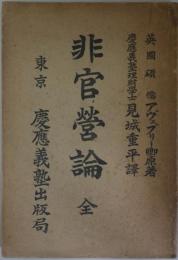 英國碩儒アヴェブリー卿原著
慶應義塾理財學士見城重平譯
非官營論 全
東京 慶應義塾出版局